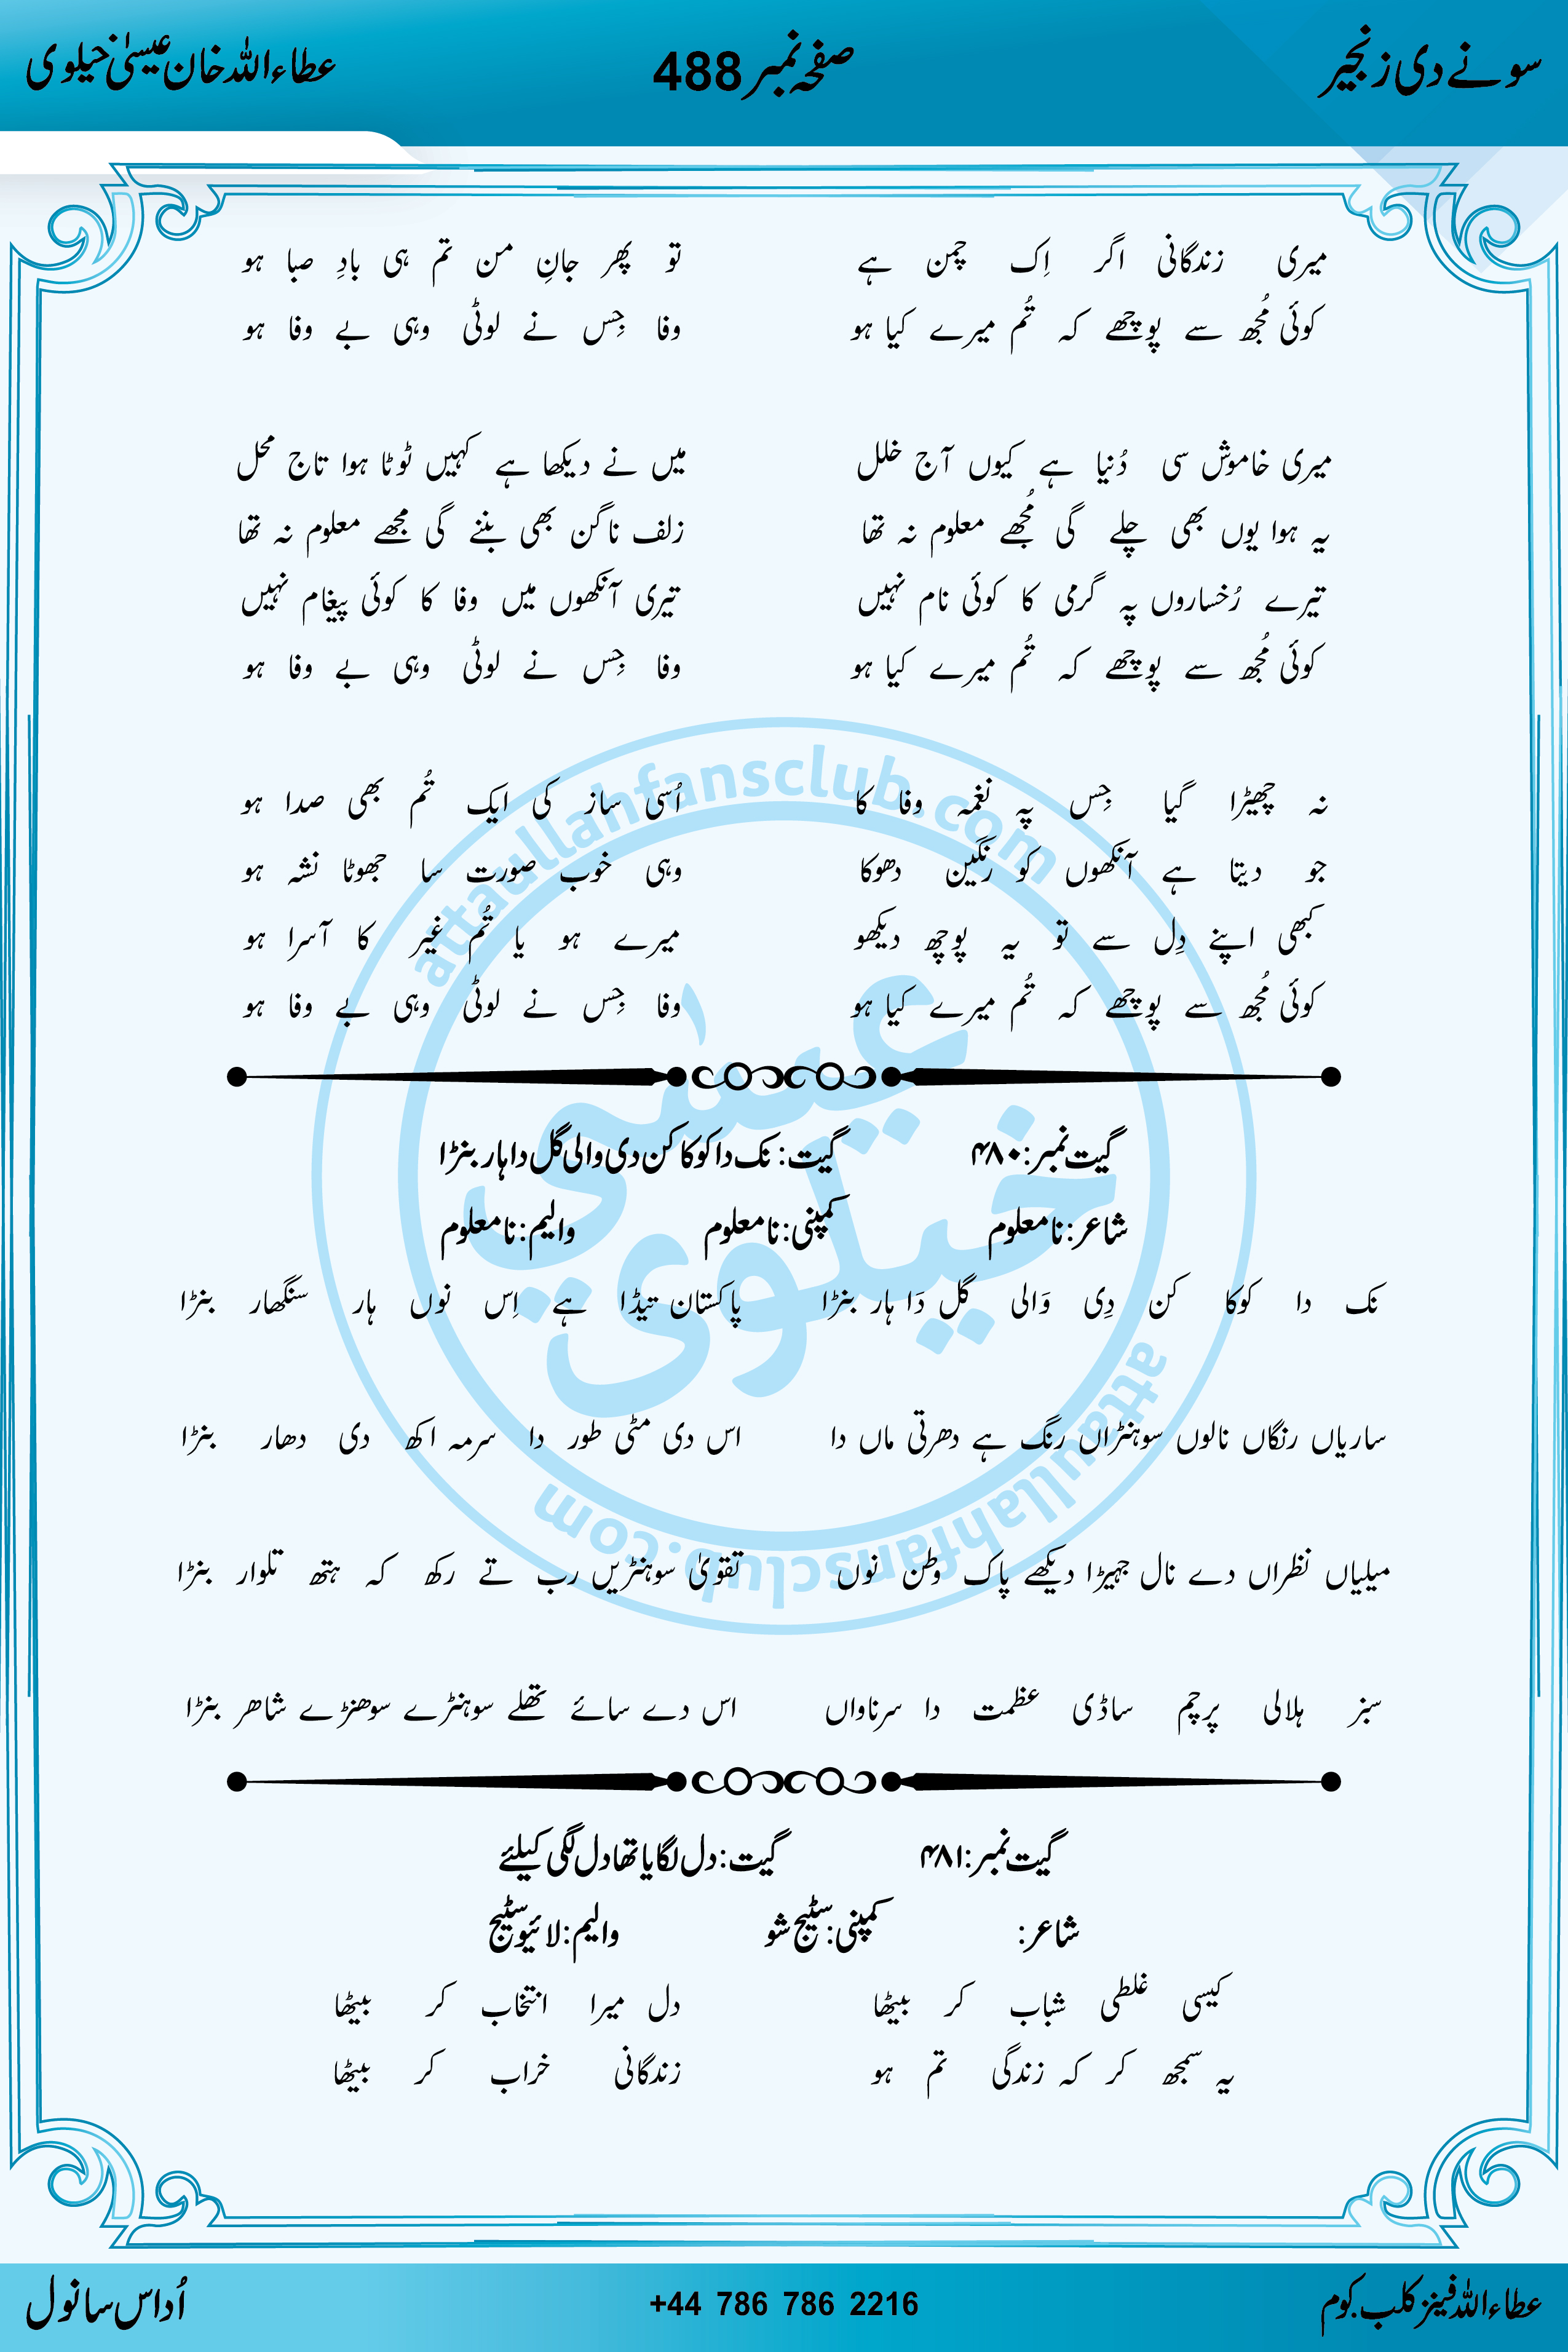 سونے دی زنجیر صفحہ نمبر 488 عطاءاللہ خان عیسیٰ خیلوی
میری زندگانی اگر اِک چمن ہے تو پھر جانِ من تم ہی بادِ صبا ہو
کوئی مُجھ سے پوچھے کہ تُم میرے کیا ہو وفا جِس نے لوٹی وہی بے وفا ہو
میری خاموش سی دُنیا ہے کیوں آج خلل میں نے دیکھا ہے کہیں ٹوٹا ہوا تاج محل
یہ ہوا یوں بھی چلے گی مُجھے معلوم نہ تھا زلف ناگن بھی بننے گی مجھے معلوم نہ تھا
تیرے رُخساروں پہ گرمی کا کوئی نام نہیں تیری آنکھوں میں وفا کا کوئی پیغام نہیں
کوئی مُجھ سے پوچھے کہ تُم میرے کیا ہو وفا جِس نے لوٹی وہی بے وفا ہو
نہ چھیڑا گیا جِس پہ نغمہ وفا کا اُسی ساز کی ایک تُم بھی صدا ہو
جو دیتا ہے آنکھوں کو رنگین دھوکا وہی خوب صورت سا جھوٹا نشہ ہو
کبھی اپنے دِل سے تو یہ پوچھ دیکھو میرے ہو یا تُم غیر کا آسرا ہو
کوئی مُجھ سے پوچھے کہ تُم میرے کیا ہو وفا جِس نے لوٹی وہی بے وفا ہو
گیت نمبر: ۴۸۰ گیت: نک دا کوکا کن دی والی گل دا ہار بنڑا
شاعر: نامعلوم کمپنی: نامعلوم والیم: نامعلوم
نک دا کوکا کن دِی وَالی گل دَا ہار بنڑا پاکستان تیڈا ہے اِس نوں ہار سنگھار بنڑا
ساریاں رنگاں نالوں سوہنڑاں رنگ ہے دھرتی ماں دا اس دی مٹی طور دا سرمہ اکھ دی دھار بنڑا
میلیاں نظراں دے نال جہیڑا دیکھے پاک وطن نوں تقویٰ سوہنڑیں رب تے رکھ کہ ہتھ تلوار بنڑا
سبز ہلالی پرچم ساڈی عظمت دا سرناواں اس دے سائے تھلے سوہنڑے سوھنڑے شاھر بنڑا
گیت نمبر: ۴۸۱ گیت: دل لگایا تھا دل لگی کیلئے
شاعر: کمپنی: سٹیج شو والیم: لائیو سٹیج
کیسی غلطی شباب کر بیٹھا دل میرا انتخاب کر بیٹھا
یہ سمجھ کر کہ زندگی تم ہو زندگانی خراب کر بیٹھا
عطاءاللہ فینز کلب.کوم +44 786 786 2216 اُداس سانول
attaullahfansclub.com
عیسٰی
خیلوی
attaullahfansclub.com